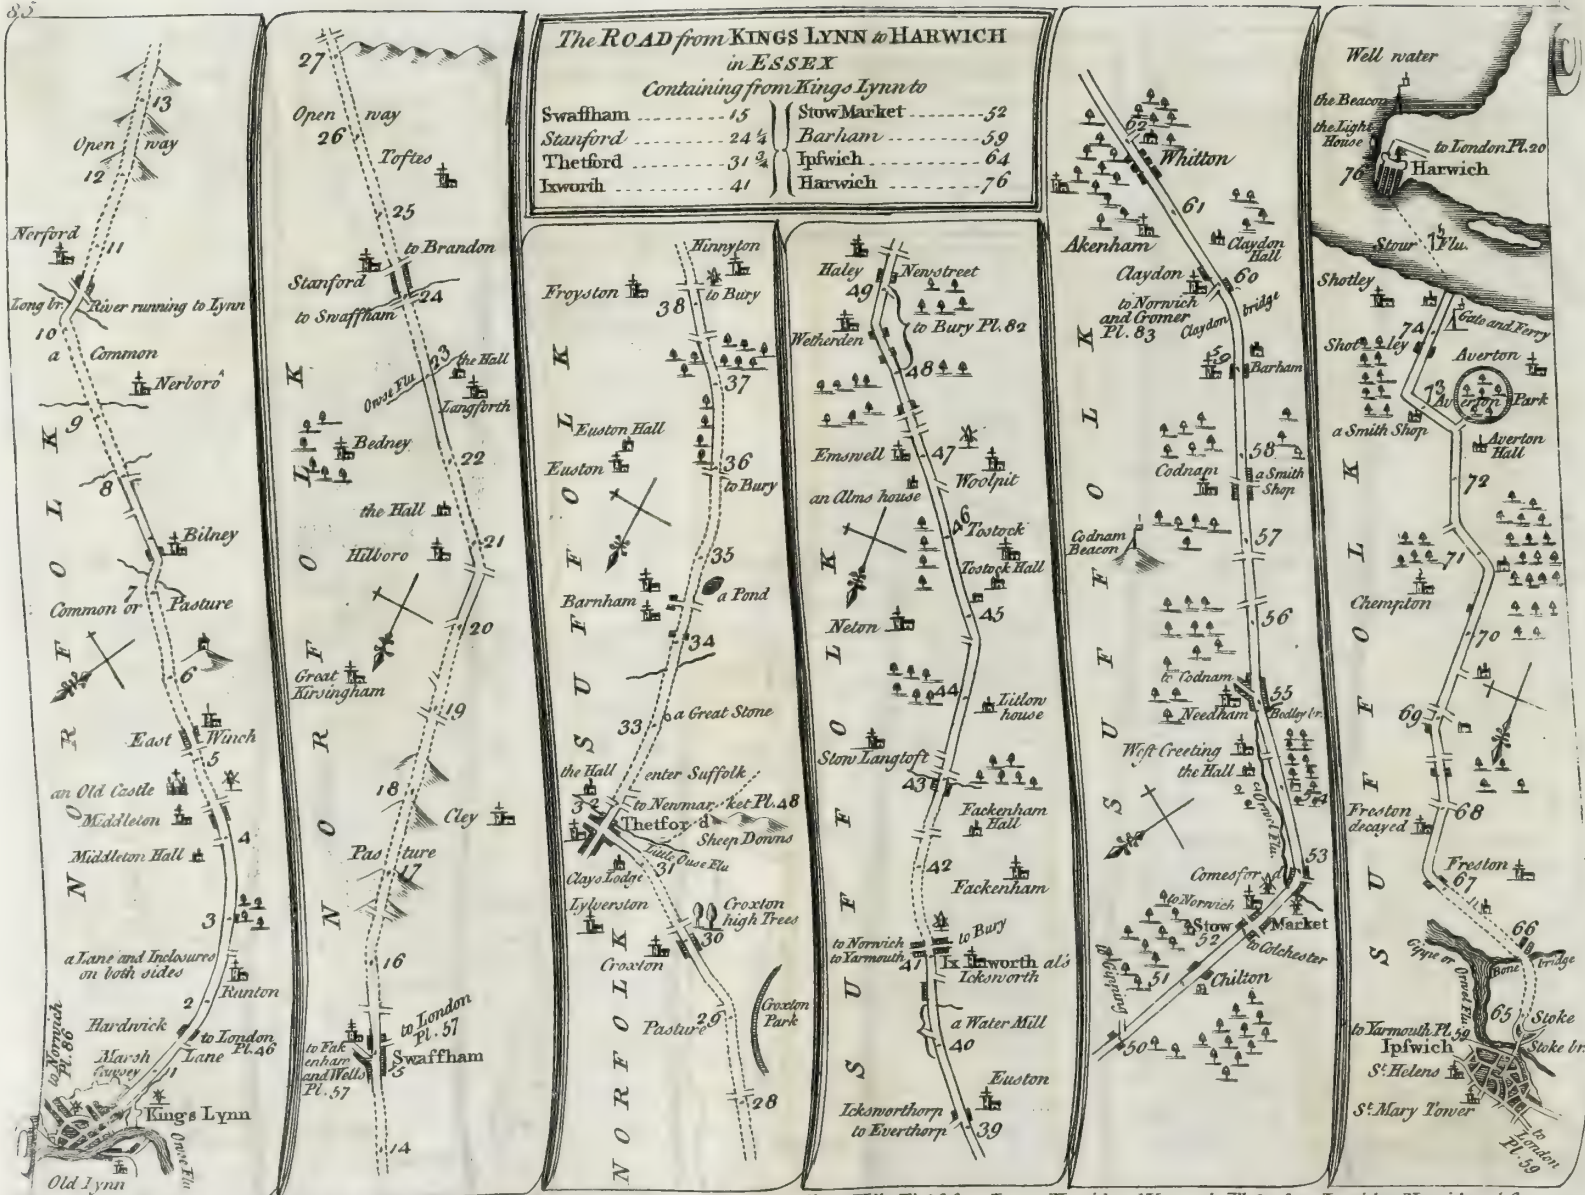 85
The ROAD from KINGS LYNN to HARWICH
in ESSEX
Containing from Kings Lynn to
Swaffham 15
Stanford 24 1/4
Thetford 31 3/4
Ixworth 41
Stow Market 52
Barham 59
Ipswich 64
Harwich 76
NORFOLK
13
Open way
12
Nerford
11
Long br.
River running to Lynn
10
a Common
Nerboro'
9
8
Bilney
7
Common or Pasture
6
East Winch
5
an Old Castle
Middleton
4
Middleton Hall
3
a Lane and Inclosures
on both sides
Runton
2
Hardwick
to London
Pl. 46
to Norwich
Pl. 86
Marsh Lane
Causey
1
Kings Lynn
Owse Flu
Old Lynn
NORFOLK
27
Open way
26
Toftes
25
to Brandon
Stanford
24
to Swaffham
23
the Hall
Owse Flu
Langforth
Bedney
22
the Hall
21
Hilboro
20
Great
Kirsingham
19
18
Cley
Pasture
17
16
to London
Pl. 57
to Fak
enham
and Wells
Pl. 57
Swaffham
15
14
SUFFOLK
Hinnyton
Froyston
38
to Bury
37
Euston Hall
Euston
36
to Bury
35
Barnham
a Pond
34
a Great Stone
33
the Hall
enter Suffolk
32
to Newmarket Pl. 48
Thetford
Sheep Downs
Little Ouse Flu
31
Clays Lodge
Lylverston
Croxton
high Trees
30
Croxton
NORFOLK
Pasture
29
Croxton
Park
28
SUFFOLK
Haley
Newstreet
49
to Bury Pl. 82
Wetherden
48
Emswell
47
Woolpit
an Alms house
46
Tostock
Tostock Hall
45
Neton
44
Litlow
house
Stow Langtoft
43
Fackenham
Hall
42
Fackenham
to Norwich
to Yarmouth
to Bury
41
Ixworth al's
Icksworth
a Water Mill
40
Euston
Icksworthorp
to Everthorp
39
SUFFOLK
62
Whitton
61
Akenham
Claydon
Hall
Claydon
60
to Norwich
and Cromer
Pl. 83
Claydon bridge
59
Barham
58
Codnam
a Smith
Shop
57
Codnam
Beacon
56
to Codnam
55
Needham
Bodley br.
West Creeting
the Hall
54
Orwel Flu.
53
Comesford
to Norwich
Stow Market
52
to Colchester
51
Chilton
to Gipping
50
SUFFOLK
Well water
the Beacon
the Light
House
to London Pl. 20
76
Harwich
75
Stour Flu.
Shotley
Gate and Ferry
74
Shotley
Averton
73
Averton Park
a Smith Shop
Averton
Hall
72
71
Chempton
70
69
68
Freston
decayed
Freston
67
66
Bone bridge
Gippe or
Orwel Flu
65
Stoke
to Yarmouth Pl. 59
Stoke br.
Ipswich
St. Helens
St. Mary Tower
to
London
Pl. 59